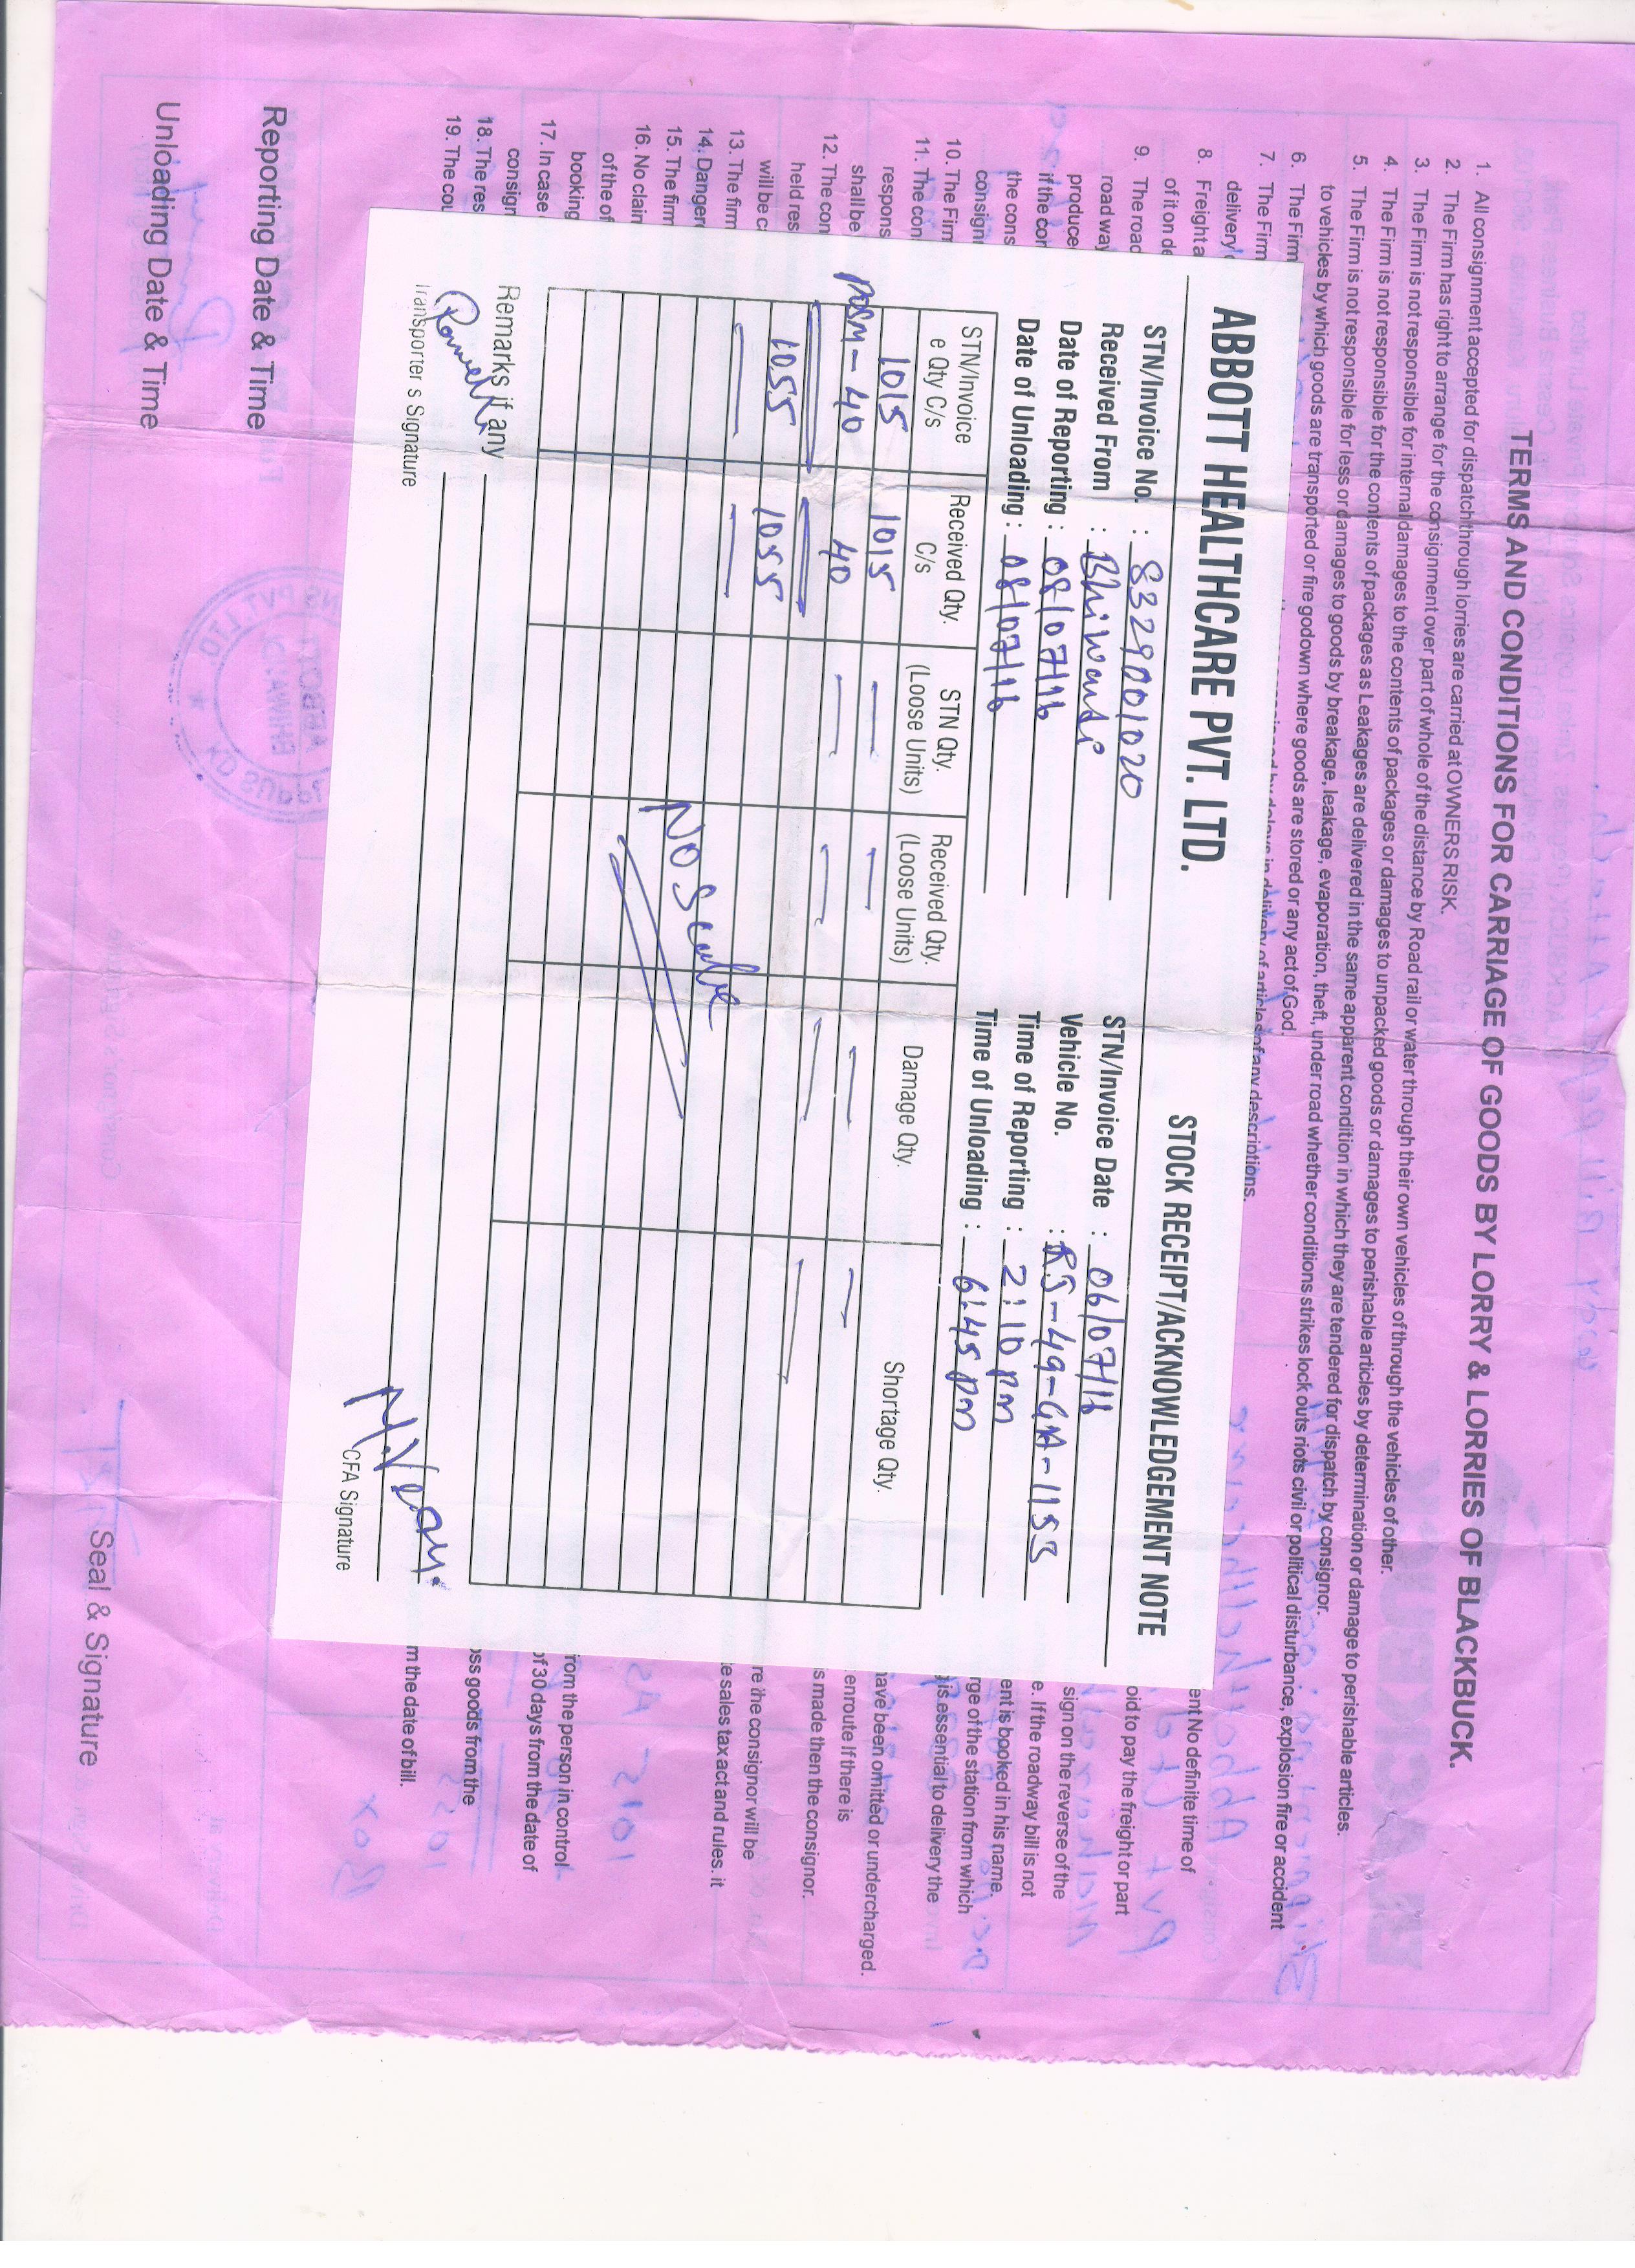 TERMS AND CONDITIONS FOR CARRIAGE OF GOODS BY LORRY & LORRIES OF BLACKBUCK.
1. All consignment accepted for dispatch through lorries are carried at OWNERS RISK.
2. The Firm has right to arrange for the consignment over part of whole of the distance by Road rail or water through their own vehicles of through the vehicles of other.
3. The Firm is not responsible for internal damages to the contents of packages or damages to unpacked goods or damages to perishable articles by determination or damage to perishable articles.
4. The Firm is not responsible for the contents of packages as Leakages are delivered in the same apparent condition in which they are tendered for dispatch by consignor.
5. The Firm is not responsible for less or damages to goods by breakage, leakage, evaporation, theft, under road whether conditions strikes lock outs riots civil or political disturbance, explosion fire or accident
to vehicles by which goods are transported or fire godown where goods are stored or any act of God.
6. The Firm
7. The Firm delivery of articles of any descriptions.
delivery
8. Freight a ent No definite time of
of it on de
9. The road oid to pay the freight or part
roadway sign on the reverse of the
produce e. If the roadway bill is not
if the cor ent is booked in his name
the cons rge of the station from which
consign is essential to delivery the
10. The Firm
11. The con have been omitted or undercharged.
respons enroute If there is
shall be s made then the consignor.
12. The con
held res re the consignor will be
will be c e sales tax act and rules. it
13. The firm
14. Danger
15. The firm
16. No clain rom the person in control
of the of of 30 days from the date of
booking
17. In case oss goods from the
consign
18. The res m the date of bill.
19. The cou
ABBOTT HEALTHCARE PVT. LTD.
STOCK RECEIPT/ACKNOWLEDGEMENT NOTE
STN/Invoice No. : 8329001020 STN/Invoice Date : 06/07/16
Received From : Bhiwandi Vehicle No. : RJ-49-GA-1153
Date of Reporting : 08/07/16 Time of Reporting : 2:10 pm
Date of Unloading : 08/07/16 Time of Unloading : 6:45 pm
STN/Invoice Received Qty. STN Qty. Received Qty. Damage Qty. Shortage Qty.
e Qty C/s C/s (Loose Units) (Loose Units)
1015 1015 — — — —
POSM-40 40 — — — —
1055 1055
No
Remarks if any
Transporter s Signature
CFA Signature
Reporting Date & Time
Unloading Date & Time
Seal & Signature